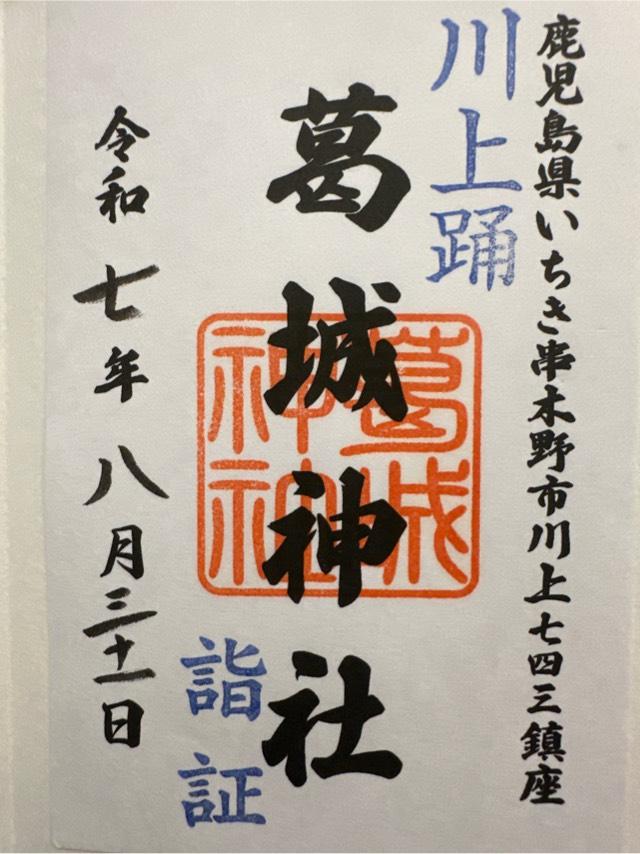 鹿児島県いちき串木野市川上七四三鎮座
川上踊
葛城神社
葛城
神社
詣証
令和七年八月三十一日